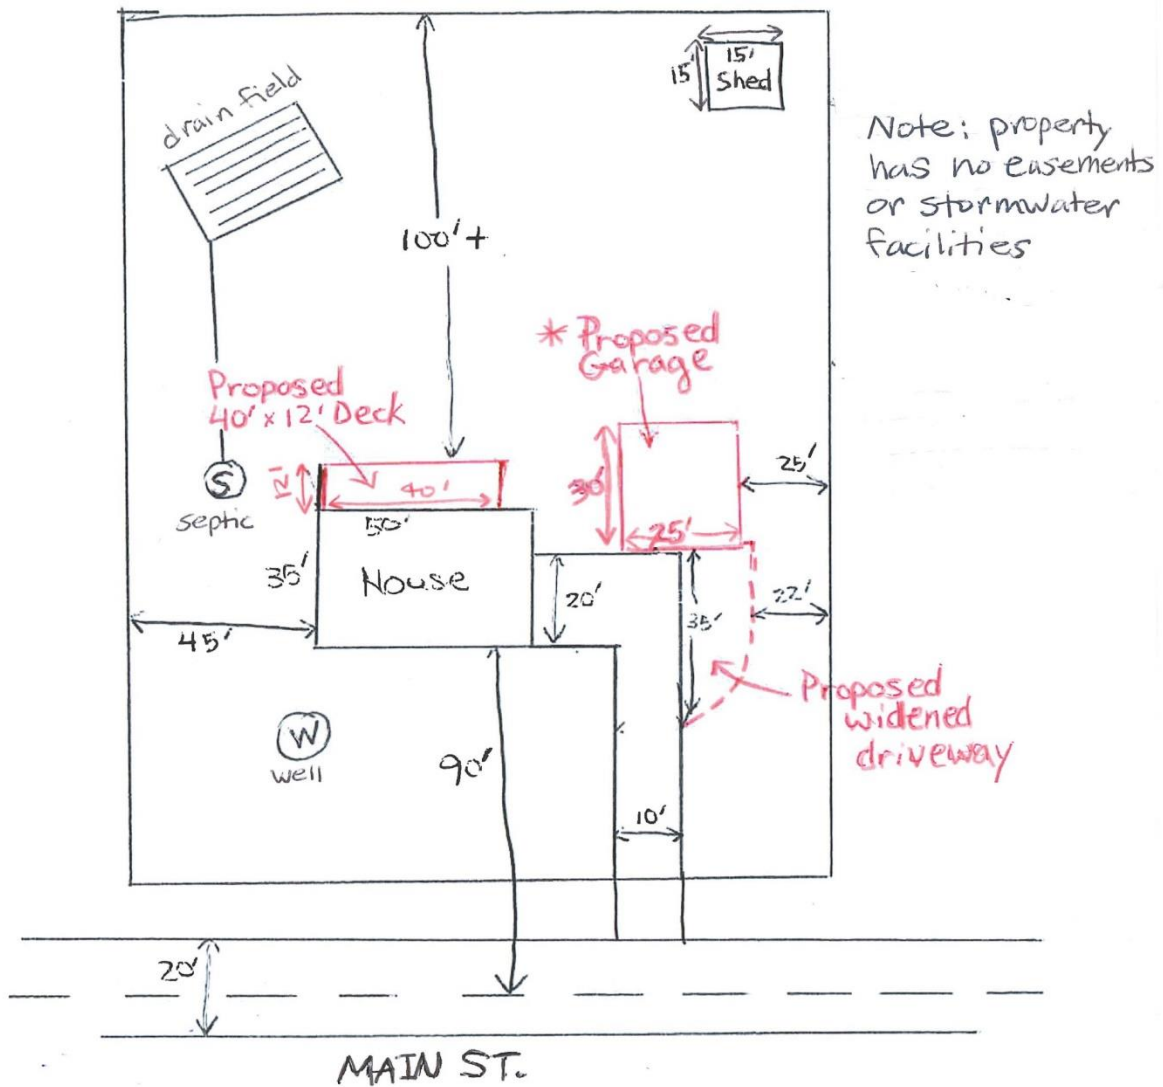 15'
15'
Shed
drain field
Note: property
has no easements
or stormwater
facilities
100'+
* Proposed
Garage
Proposed
40' x 12' Deck
S
septic
12'
40'
30'
25'
25'
50'
35'
House
20'
35'
22'
45'
Proposed
widened
driveway
W
well
90'
10'
20'
MAIN ST.